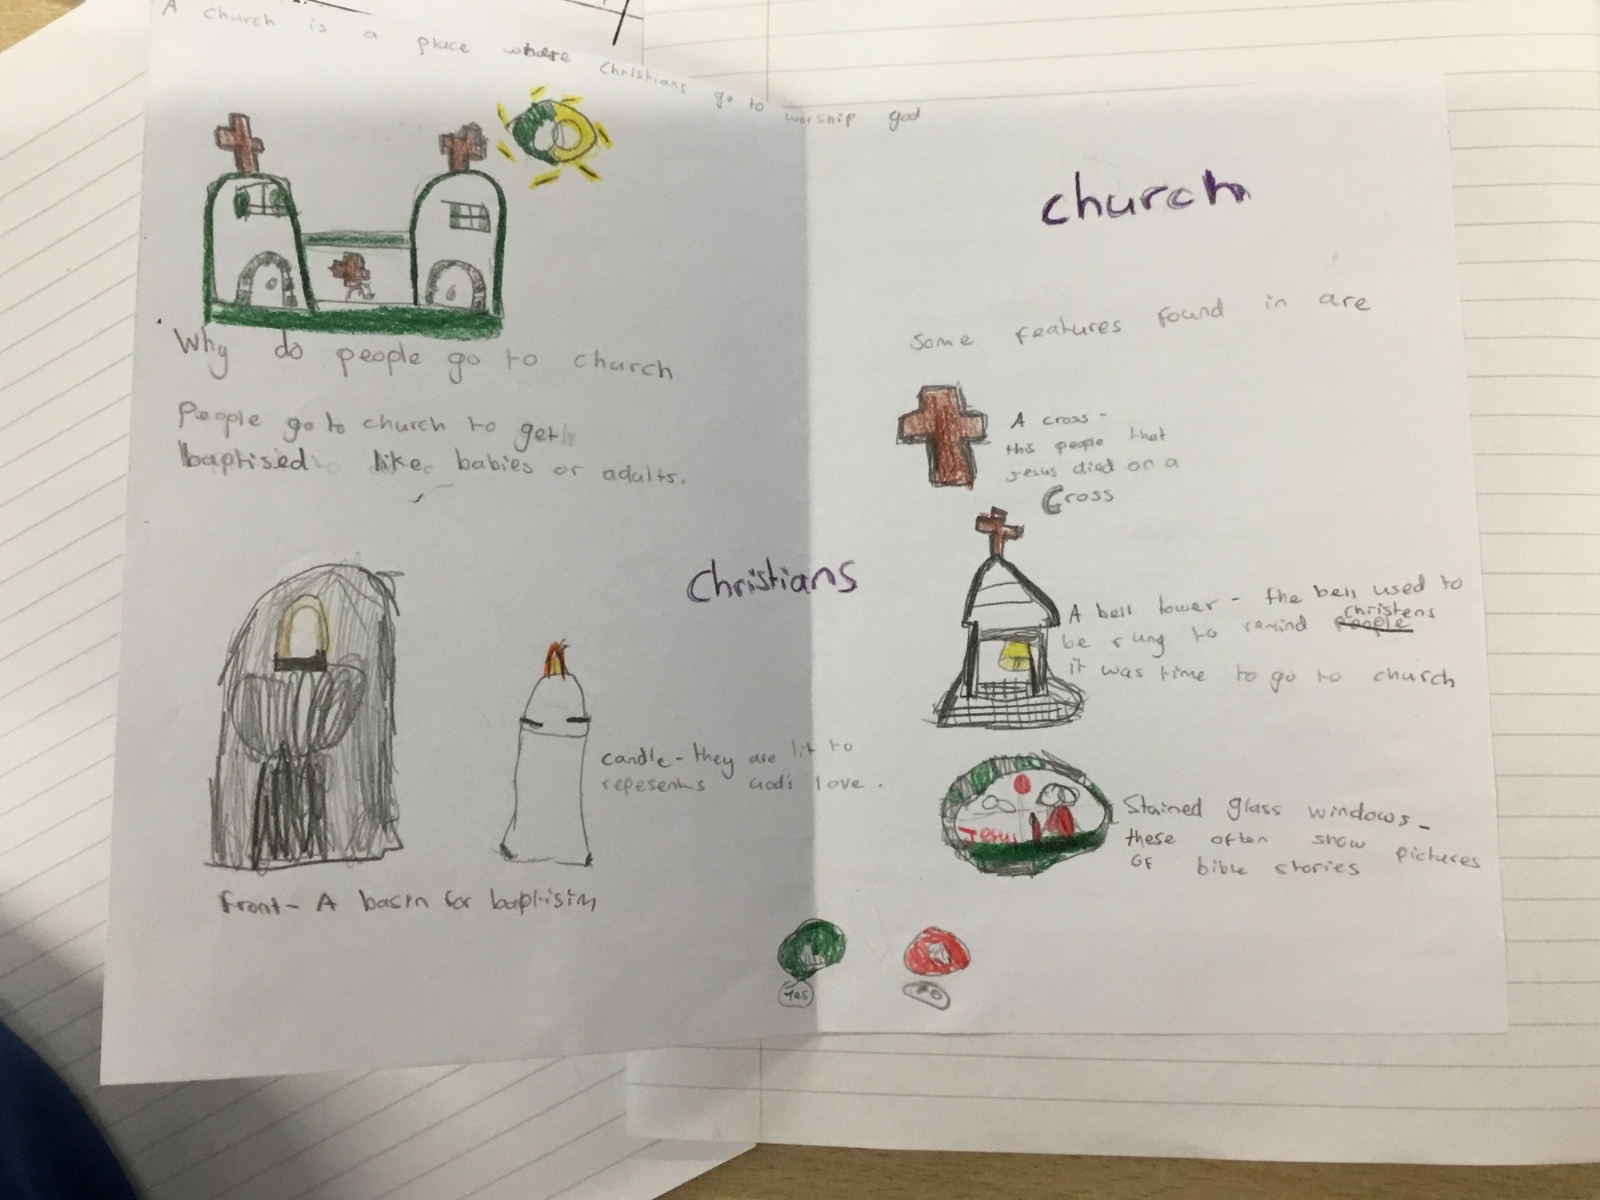 A church is a place where Christians go to worship god
church
Why do people go to church
People go to church to get
baptised like babies or adults.
Christians
candle - they are lit to
repesents God's love.
Front - A basin for baptisim
Some features found in are
A cross -
this people that
Jesus died on a
Cross
A bell tower - the bell used to
christens
be rung to remind people
it was time to go to church
Jesus
Stained glass windows -
these often show pictures
of bible stories
Yes
no